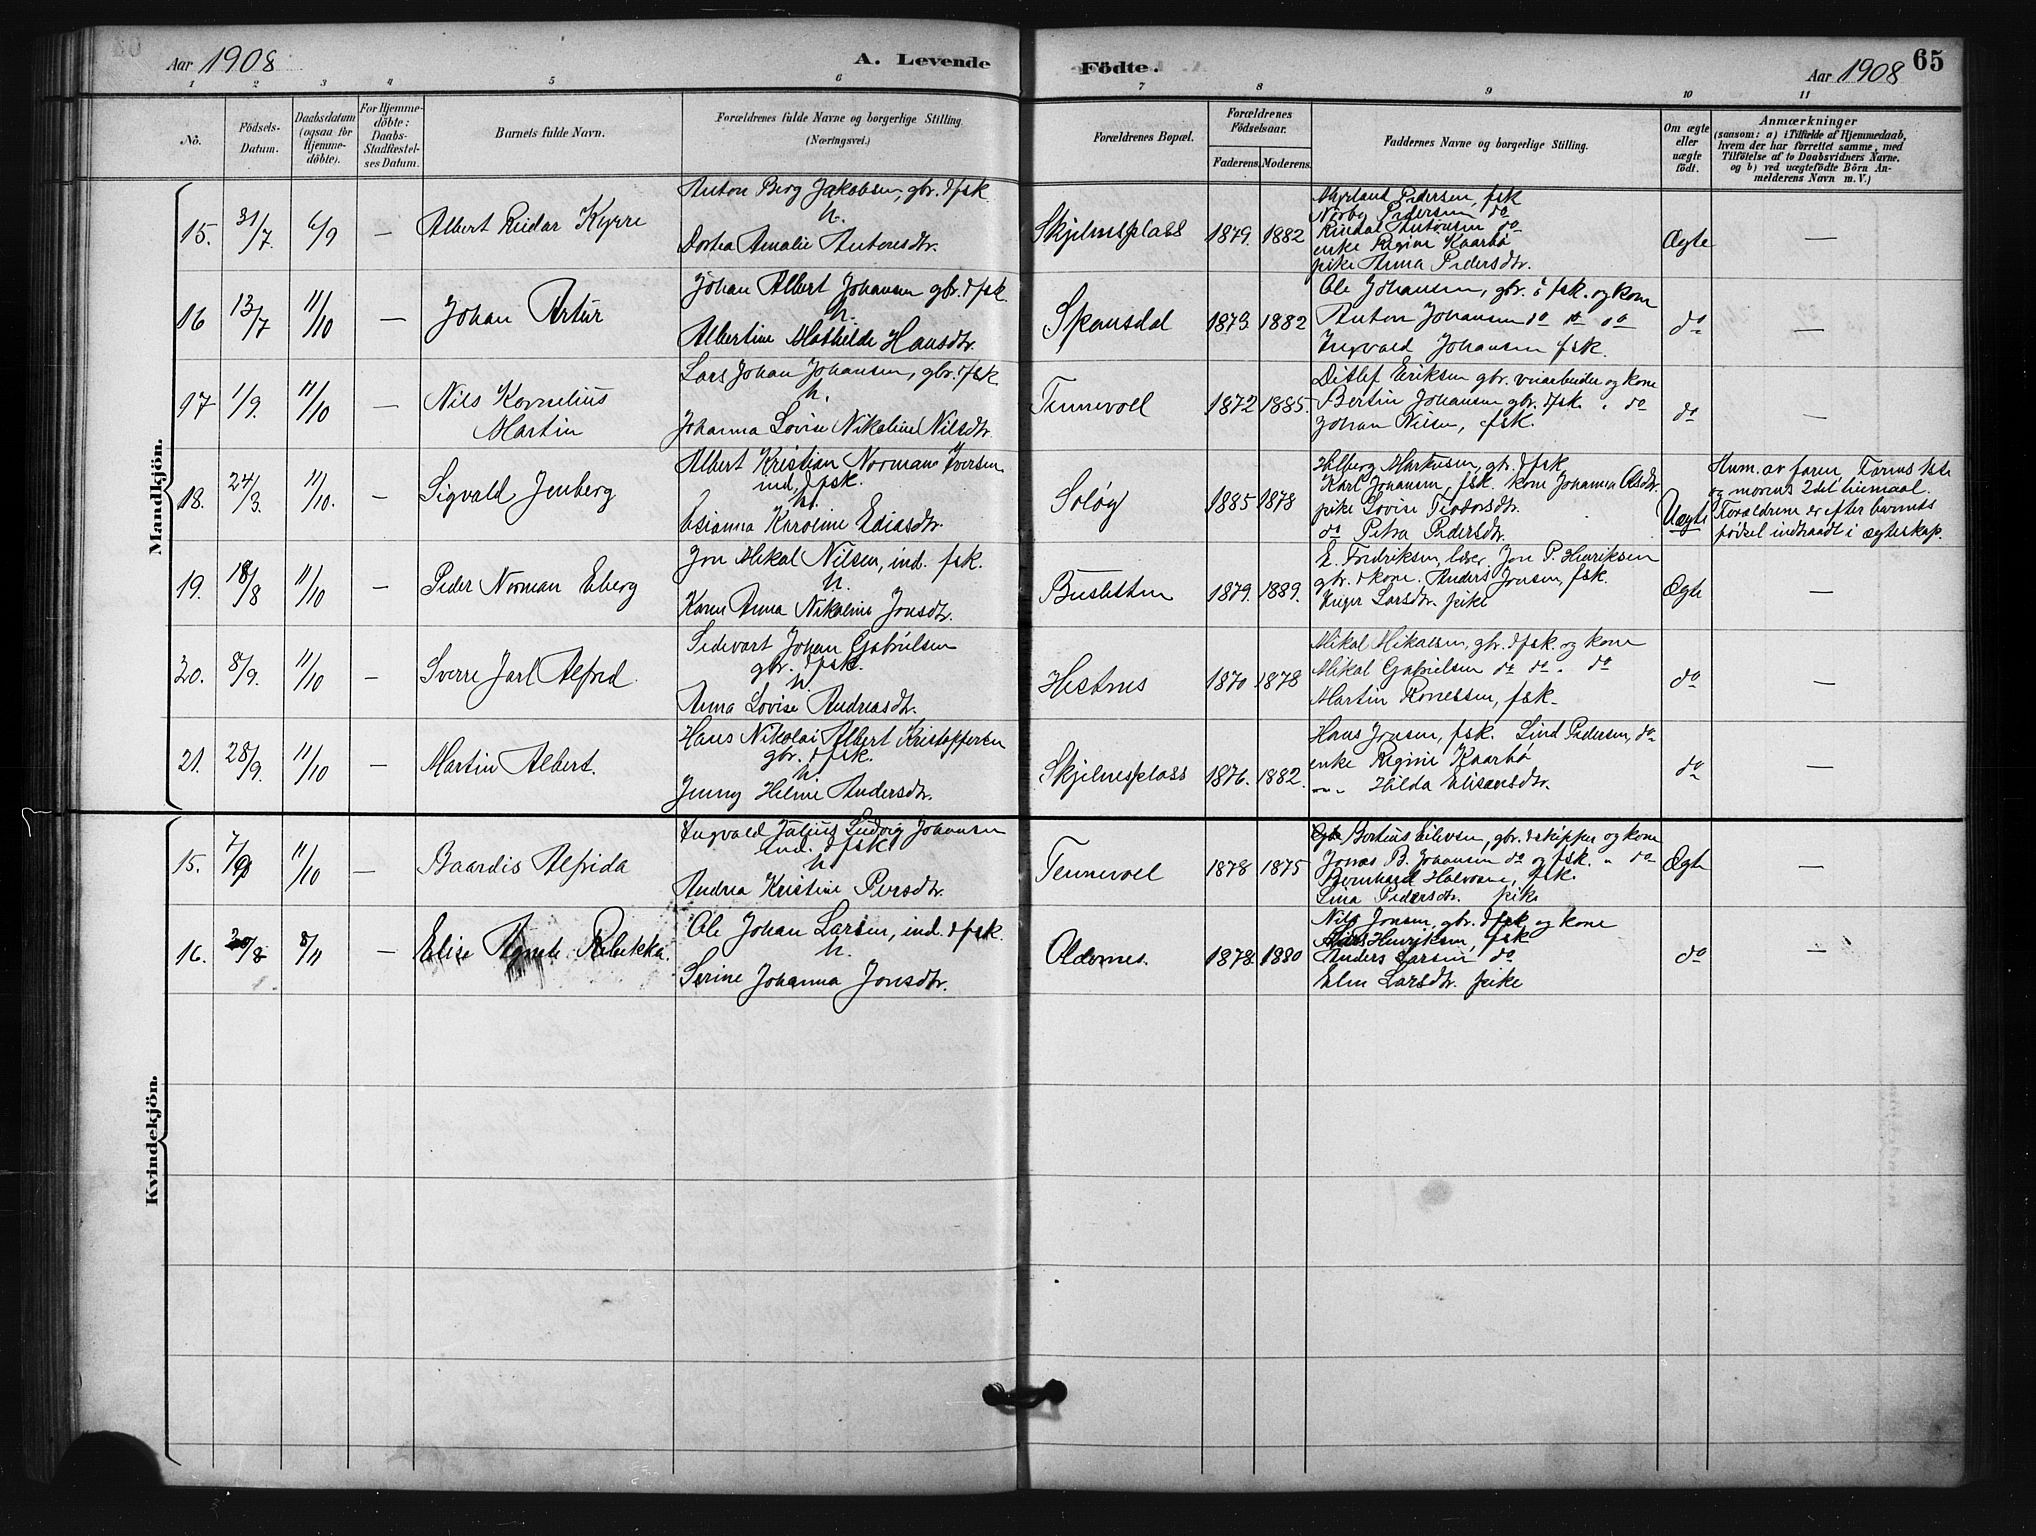 Aar 1908
A. Levende
Födte.
Aar 1908
65
1 2 3 4 5 6 7 8 9 10 11
No.
Födsels-Datum.
Daabsdatum (ogsaa for Hjemmedöbte).
For Hjemmedöbte: Daabs-Stadfæstelses Datum.
Barnets fulde Navn.
Forældrenes fulde Navne og borgerlige Stilling. (Næringsvei.)
Forældrenes Bopæl.
Forældrenes Födselsaar.
Faderens. Moderens.
Faddernes Navne og borgerlige Stilling.
Om ægte eller uægte födt.
Anmærkninger
(saasom: a) i Tilfælde af Hjemmedaab, hvem der har forrettet samme, med Tilföielse af to Daabsvidners Navne, og b) ved uægtefödte Börn Anmelderens Navn m. V.)
Mandkjön.
15. 31/7. 6/9 — Albert Reidar Kyrre
Anton Berg Jakobsen, gbr. & fsk.
h.
Dortea Amalie Antonsdtr.
Skjelnesplass 1879. 1882
Myrland Pedersen, fsk
Nordby Pedersen do
Rindal Antonsen do
enke Regine Kaarbö
pike Anna Pedersdtr.
Ægte —
16 13/7 11/10 — Johan Artur
Johan Albert Johansen gbr. & fsk.
h.
Albertine Mathilde Hansdtr.
Skansdal 1873 1882
Ole Johansen, gbr. & fsk. og kone
Anton Johansen do do do
Ingvald Johansen fsk.
do —
17 1/9. 11/10 — Nils Kornelius
Martin
Lars Johan Johansen, gbr. & fsk
h.
Johanna Lovise Nikoline Nilsdtr.
Tennevoll 1872 1885.
Ditlef Eriksen gbr. veiarbeider og kone
Bertin Johansen gbr. & fsk. " do
Johan Nilsen, fsk.
do —
18. 24/3. 11/10. — Sigvald Jenberg
Albert Kristian Normann Iversen
ind. & fsk.
h.
Esianna Karoline Ediasdtr.
Soløy 1885 1878
Hilberg Markusen, gbr. & fsk
Karl Johansen, fsk. kone Johanna Olsdtr.
pike Lovise Teodorsdtr.
do Petra Pedersdtr.
Uægte
Anm. av faren, Farens 1ste
og morens 2det leiemaal.
Forældrene er efter barnets
födsel indtraadt i ægteskap.
19. 18/8 11/10 — Peder Norman Eberg
Jon Mikal Nilsen, ind. fsk.
h.
Karen Anna Nikoline Jonsdtr.
1879. 1889.
E. Fredriksen, lærer, Jon P. Henriksen
gbr. & kone. Anders Jonsen, fsk.
Inger Larsdtr. pike
Ægte —
20. 8/9. 11/10 — Sverre Jarl Alfred
Sedevart Johan Gabrielsen
gbr. & fsk.
h.
Anna Lovise Andreasdtr.
Hestnes 1870 1878
Mikal Mikalsen, gbr. & fsk. og kone
Mikal Gabrielsen do do " do
Martin Ronessen, fsk.
do —
21. 28/9. 11/10 — Martin Albert.
Hans Nikolai Albert Kristoffersen
gbr. & fsk.
h
Jenny Helene Andersdtr.
Skjelnesplass 1876. 1882.
Hans Jonsen, fsk. Lind Pedersen, do
enke Regine Kaarbö
" " Hilda Elisansdtr.
do —
Kvindekjön.
15. 7/9 11/10 — Baardis Alfrida
Ingvald Julius Ludvig Johansen
ind. & fsk
h
Andrea Kristine Persdtr.
Tennevoll 1878 1875
Bertius Eilevsen, gbr. & skipper og kone
Jonas B. Johansen do og fsk. " do
Bernhard Halvorsen, fsk.
Lina Pedersdtr. pike
Ægte —
16. 20/8 8/11 — Elise Agnete Rebekka.
Ole Johan Larsen, ind. & fsk.
h.
Serine Johanna Jonsdtr.
Oldernes. 1878 1880
Nils Jonsen, gbr. & fsk og kone
Henriksen, fsk
Anders Larsen do
Elen Larsdtr. pike
do —